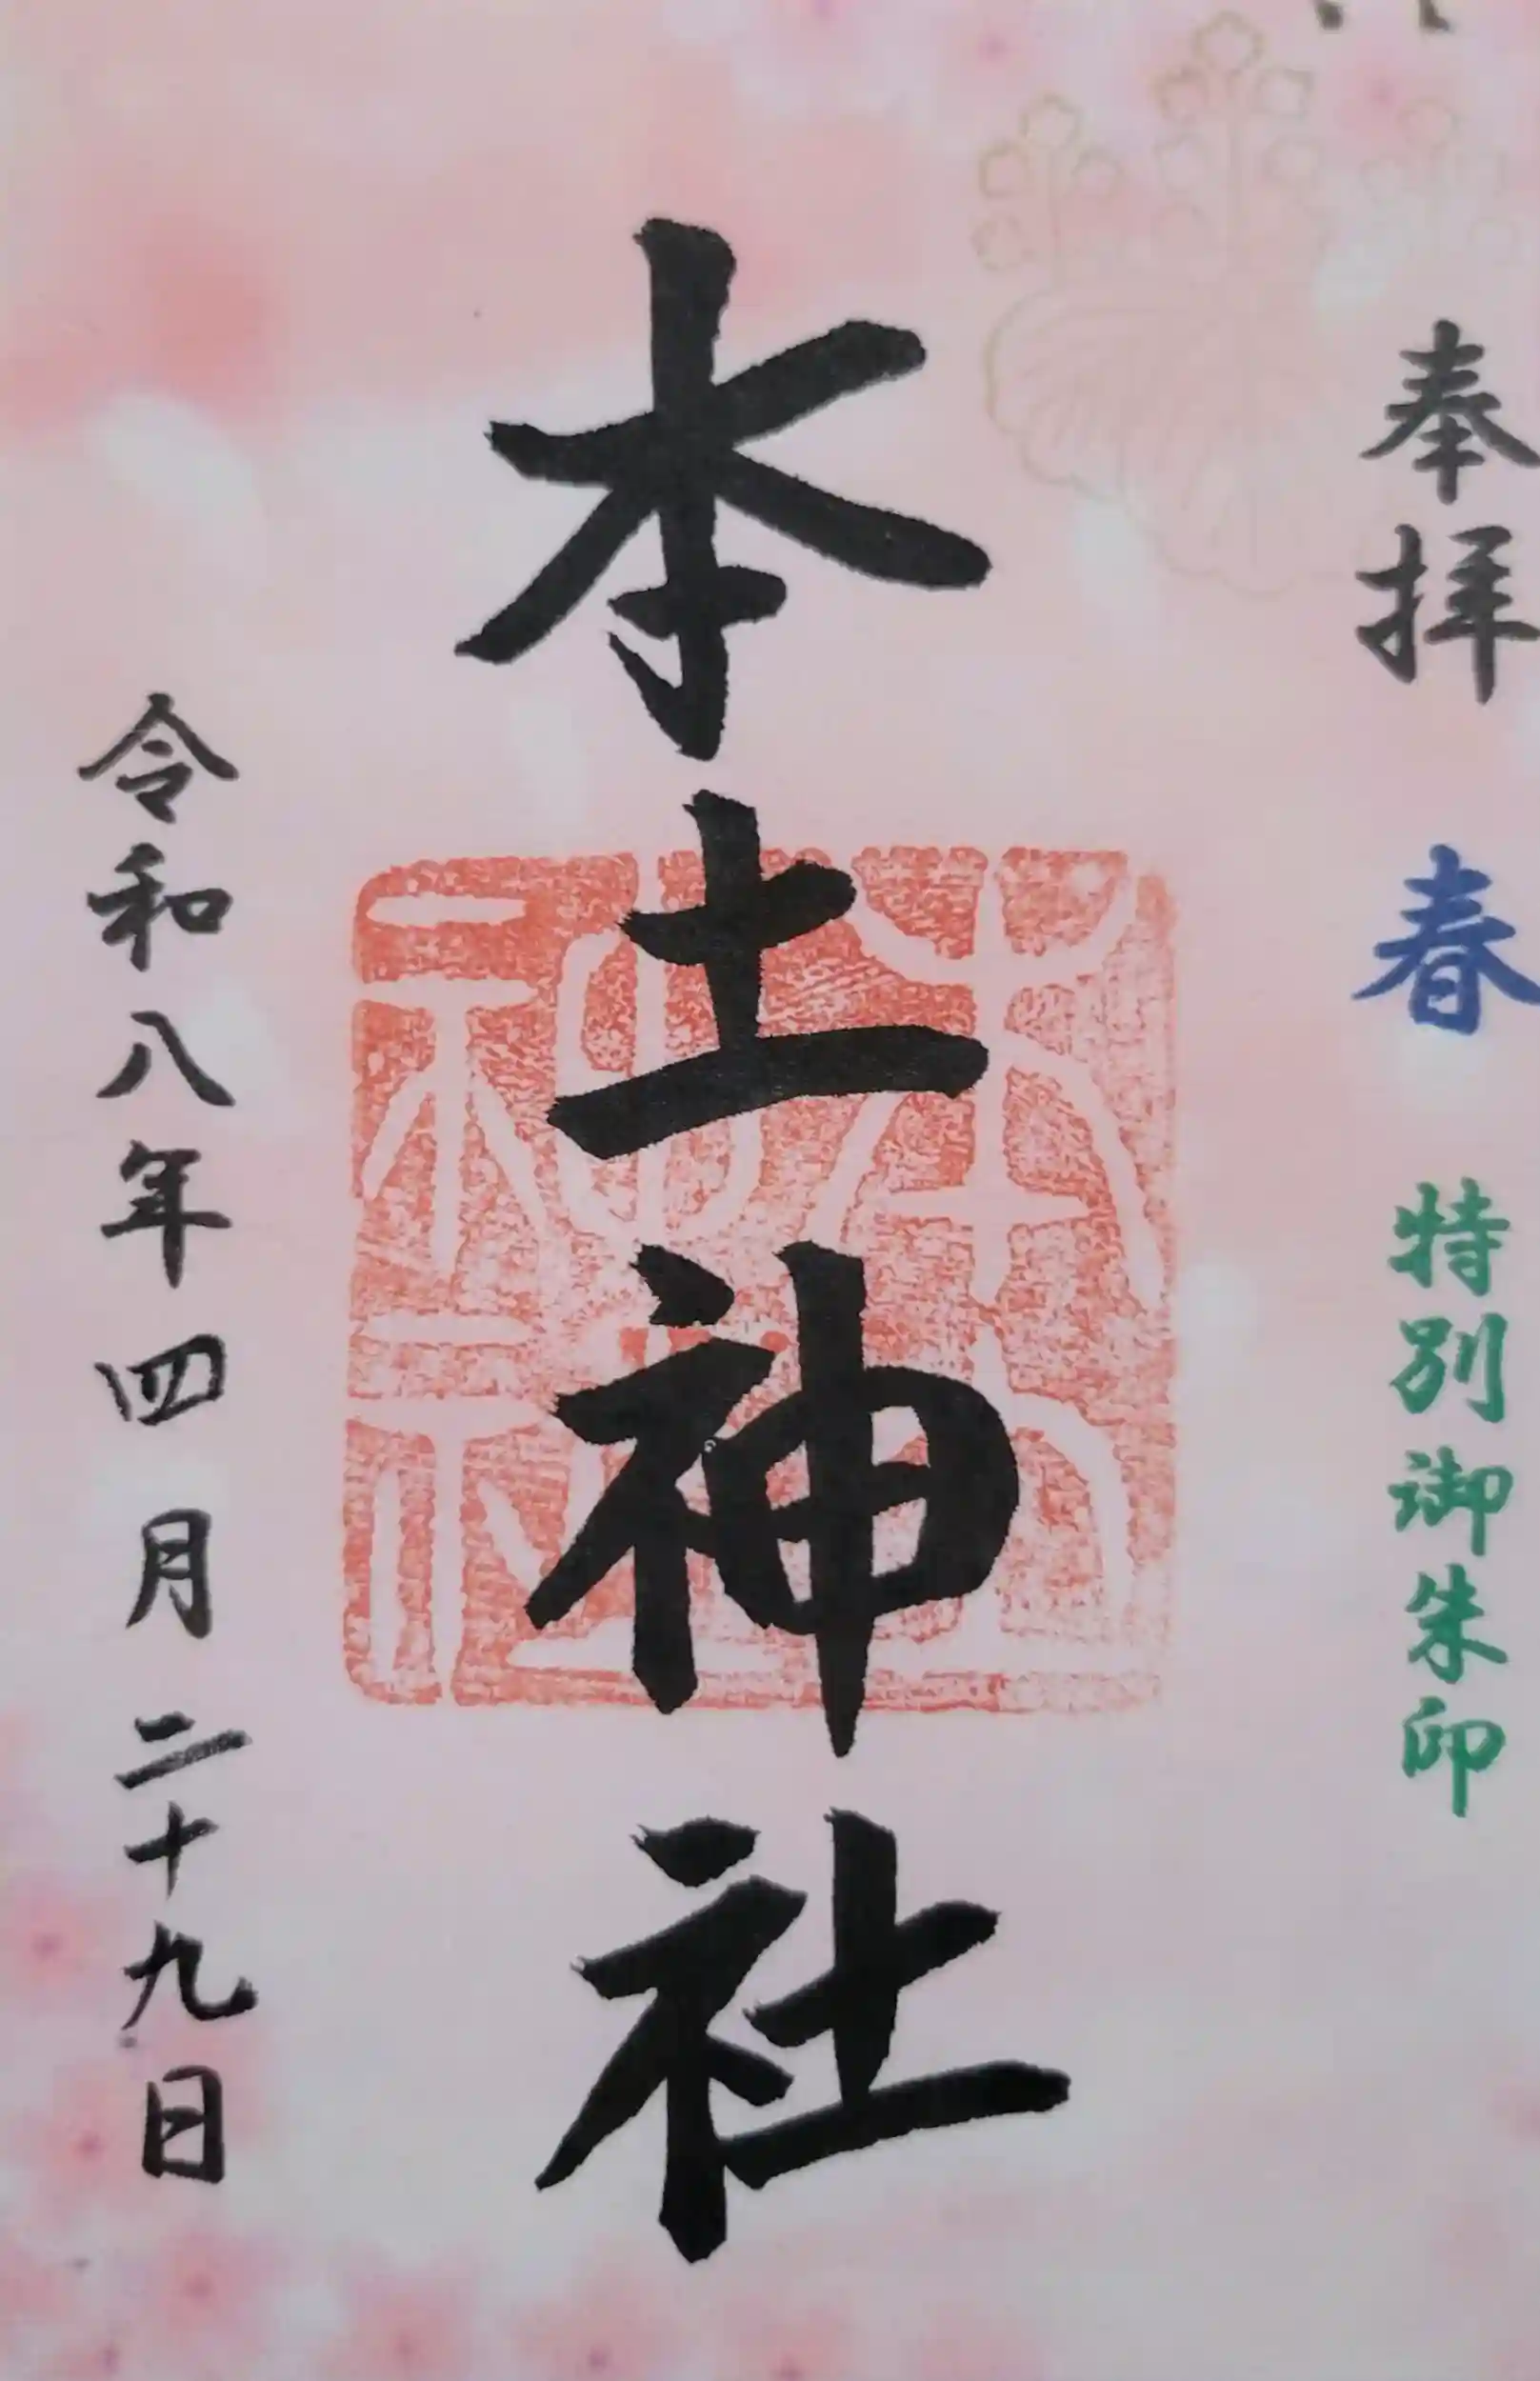 奉拝 春 特別御朱印
本土神社
令和八年四月二十九日